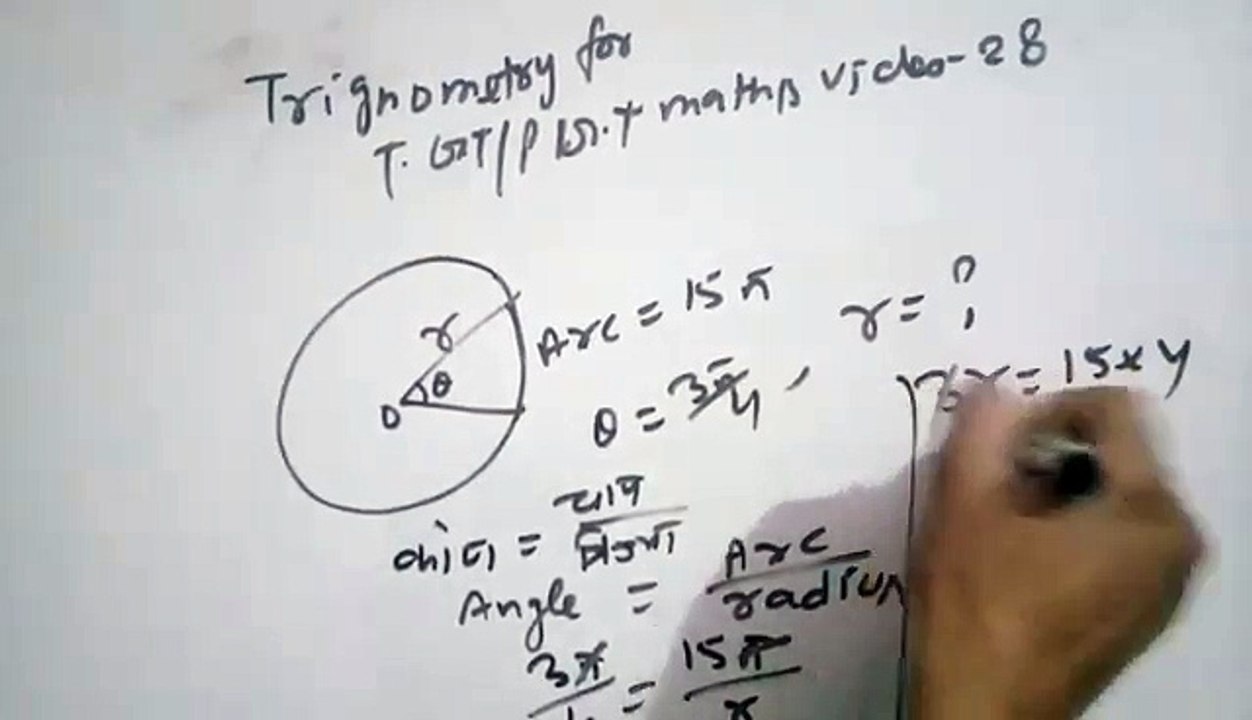 Trignometry for
T. GT/P G.T maths video-28
r
θ
O
Arc = 15π
r = ?
θ = 3π/4
3r = 15x4
कोण = चाप/त्रिज्या
Angle = Arc/radius
3π/4 = 15π/r